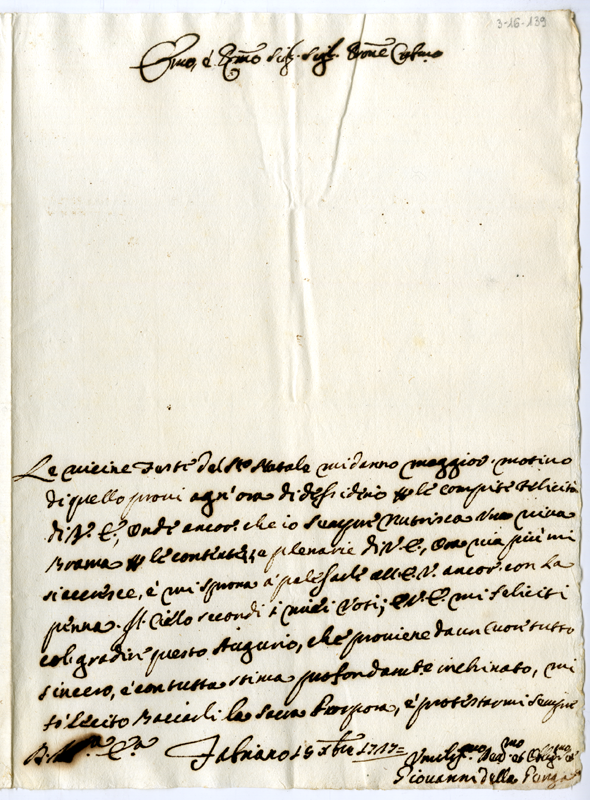 3-16-139
Emo, e Rmo Sig.r Sig.r Prone Colmo
Le vicine Feste del Sto Natale mi danno maggior motivo
di quello provi ogn'ora di desiderio le compite felicità
di V. E., Onde ancor che io sempre nutrisca una viva
Brama le contente, e plenarie di V. E., Ora via più mi
si accresce, e mi sprona a palesarle all'E. V. ancor con la
penna. Il Cielo secondi i miei Voti; e V. E. mi feliciti
col gradir questo Augurio, che proviene da un Cuor tutto
sincero, e con tutta stima profondamte inchinato, mi
fò lecito Baciarli la Sacra Porpora, e protestarmi sempre
Fabriano 15 Xbre 1717
Umiliss.mo Dev.mo et Oblig.mo
Giovanni della Penga